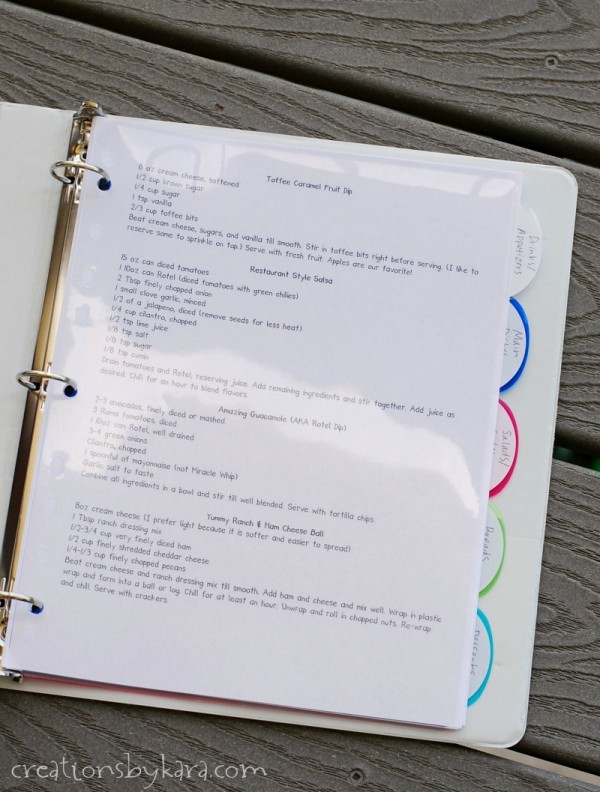 Toffee Caramel Fruit Dip
8 oz cream cheese, softened
1/2 cup brown sugar
1/4 cup sugar
1 tsp vanilla
2/3 cup toffee bits
Beat cream cheese, sugars, and vanilla till smooth. Stir in toffee bits right before serving. (I like to
reserve some to sprinkle on top.) Serve with fresh fruit. Apples are our favorite!
Restaurant Style Salsa
15 oz can diced tomatoes
1 10oz can Rotel (diced tomatoes with green chilies)
2 Tbsp finely chopped onion
1 small clove garlic, minced
1/2 of a jalapeno, diced (remove seeds for less heat)
1/4 cup cilantro, chopped
1/2 tsp lime juice
1/8 tsp salt
1/8 tsp sugar
1/8 tsp cumin
Drain tomatoes and Rotel, reserving juice. Add remaining ingredients and stir together. Add juice as
desired. Chill for an hour to blend flavors.
Amazing Guacamole (AKA Rotel Dip)
2-3 avocados, finely diced or mashed
3 Roma tomatoes, diced
1 10oz can Rotel, well drained
3-4 green onions
Cilantro, chopped
1 spoonful of mayonnaise (not Miracle Whip)
Garlic salt to taste
Combine all ingredients in a bowl and stir till well blended. Serve with tortilla chips.
Yummy Ranch & Ham Cheese Ball
8oz cream cheese (I prefer light because it is softer and easier to spread)
1 Tbsp ranch dressing mix
1/2-3/4 cup very finely diced ham
1/2 cup finely shredded cheddar cheese
1/4-1/3 cup finely chopped pecans
Beat cream cheese and ranch dressing mix till smooth. Add ham and cheese and mix well. Wrap in plastic
wrap and form into a ball or log. Chill for at least an hour. Unwrap and roll in chopped nuts. Re-wrap
and chill. Serve with crackers.
Drinks/
Appetizers
Main
Salads/
Breads
Desserts
creationsbykara.com